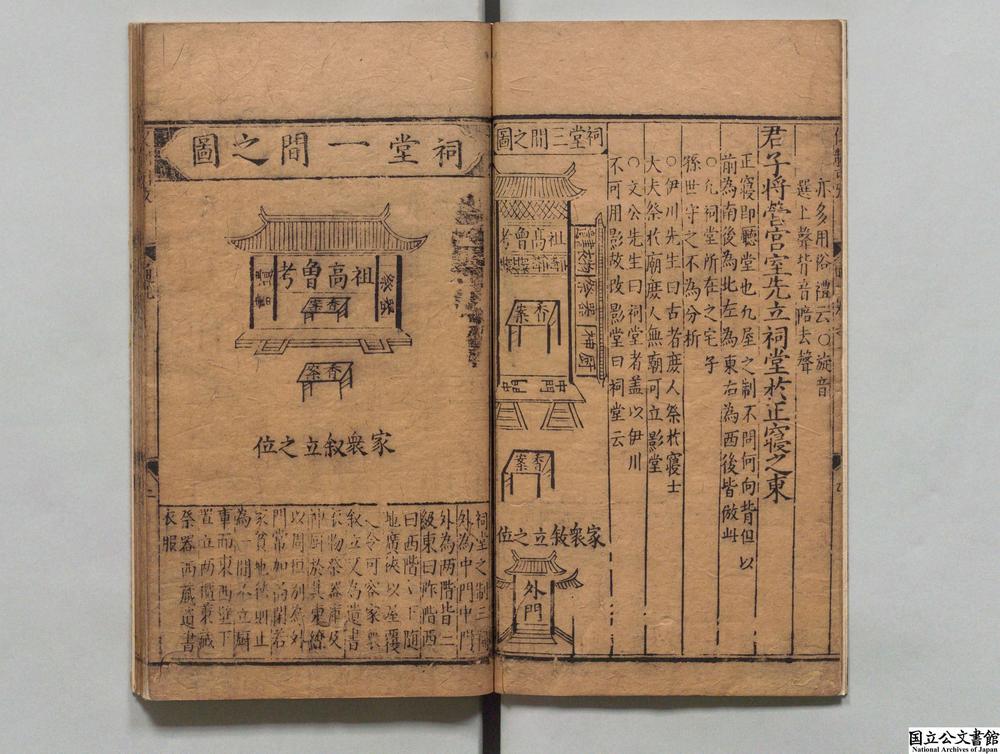 亦多用俗禮云○旋音
選上聲背音陪去聲
君子將營宮室先立祠堂於正寢之東
正寢即聽堂也凡屋之制不問何向背但以
前為南後為北左為東右為西後皆倣此
○凡祠堂所在之宅子
孫世守之不為分析
○伊川先生曰古者庶人祭於寢士
大夫祭於廟庶人無廟可立影堂
○文公先生曰祠堂者蓋以伊川
不可用影故改影堂曰祠堂云
祠堂三間之圖
祖高曾考
香案
香案
家衆敘立之位
外門
祠堂一間之圖
祭器
祖高曾考
遺書
香案
香案
家衆敘立之位
祠堂之制三間
外為中門中門
外為兩階皆三
級東曰阼階西
曰西階階下隨
地廣狹以屋覆
之令可容家衆
敘立又為遺書
衣物祭器庫及
神厨於其東繚
以周垣別為外
門常加扃閉若
家貧地狹則止
為一間不立厨
庫而東西壁下
置立兩櫃東藏
祭器西藏遺書
衣服
国立公文書館
National Archives of Japan